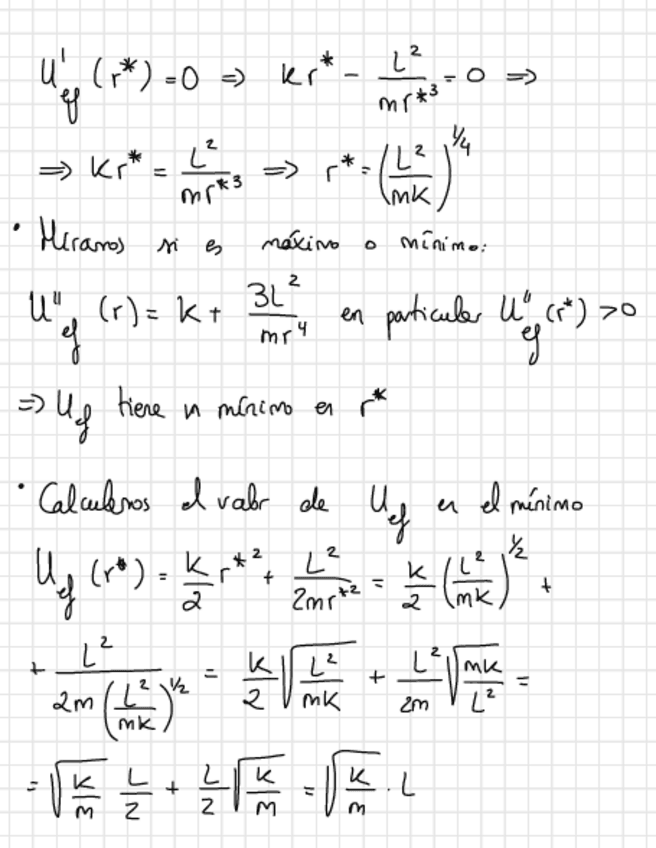 U'_ef (r*) = 0 ⇒ kr* - L²/mr*³ = 0 ⇒
⇒ kr* = L²/mr*³ ⇒ r* = (L²/mk)^1/4
• Miramos si es máximo o mínimo:
U''_ef (r) = k + 3L²/mr⁴ en particular U''_ef (r*) > 0
⇒ U_ef tiene un mínimo en r*
• Calculemos el valor de U_ef en el mínimo
U_ef (r*) = k/2 r*² + L²/2mr*² = k/2 (L²/mk)^1/2 +
+ L²/2m(L²/mk)^1/2 = k/2 √(L²/mk) + L²/2m √(mk/L²) =
= √(k/m) L/2 + L/2 √(k/m) = √(k/m) · L